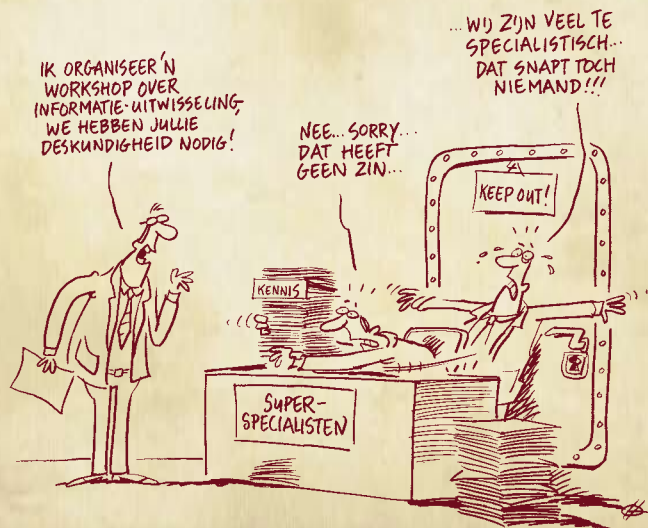 IK ORGANISEER 'N
WORKSHOP OVER
INFORMATIE-UITWISSELING,
WE HEBBEN JULLIE
DESKUNDIGHEID NODIG!
NEE... SORRY...
DAT HEEFT
GEEN ZIN...
... WIJ ZIJN VEEL TE
SPECIALISTISCH...
DAT SNAPT TOCH
NIEMAND!!!
KEEP OUT!
KENNIS
SUPER-
SPECIALISTEN